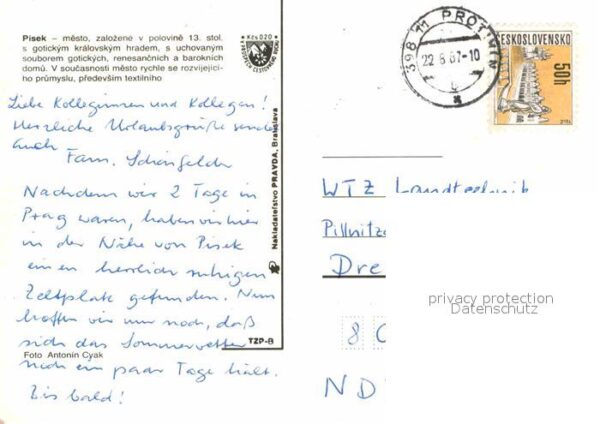 Písek – město, založené v polovině 13. stol.
s gotickým královským hradem, s uchovaným
souborem gotických, renesančních a barokních
domů. V současnosti město rychle se rozvíjející-
ho průmyslu, především textilního
Kčs 0,20
Liebe Kolleginnen und Kollegen!
Herzliche Urlaubsgrüße sendet
Euch
Fam. Schönfelder
Nachdem wir 2 Tage in
Prag waren, haben wir hier
in der Nähe von Pisek
einen herrlich ruhigen
Zeltplatz gefunden. Nun
hoffen wir nur noch, daß
sich das Sommerwetter
noch ein paar Tage hält.
Bis bald!
Foto Antonín Cyak
TZP-B
Nakladateľstvo PRAVDA, Bratislava
398 11 PROTIVÍN
22.8.87-10
ČESKOSLOVENSKO
50h
WTZ Landtechnik
Pillnitze
Dre
8
ND
privacy protection
Datenschutz